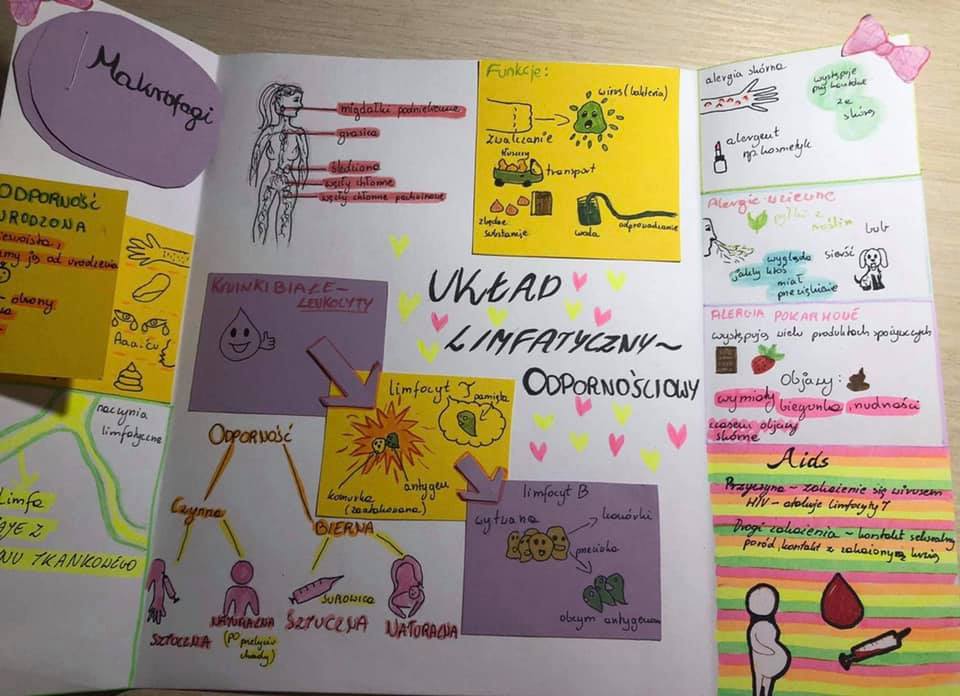 Makrofagi
ODPORNOŚĆ
WRODZONA
my ją od urodzenia
Aaa..ću
naczynia
limfatyczne
Limfa
TKANKOWEGO
migdałki podniebienne
grasica
śledziona
węzły chłonne
węzły chłonne pachwinowe
Funkcje:
wirus (bakteria)
zwalczanie
tłuszcz
transport
zbędne
substancje
woda
odprowadzanie
KRWINKI BIAŁE-
LEUKOCYTY
UKŁAD
LIMFATYCZNY~
ODPORNOŚCIOWY
limfocyt T
pamięta
antygen
komórka
(zaatakowana)
limfocyt B
wytwarza
komórki
przeciwko
obcym antygenom
ODPORNOŚĆ
Czynna
BIERNA
SZTUCZNA
NATURALNA
(po przebyciu
choroby)
SUROWICA
SZTUCZNA
NATURALNA
alergia skórna
występuje
przy kontakcie
ze
skórą
alergent
np. kosmetyk
Alergie wziewne
pyłki z
roślin
lub
sierść
wygląda
jakby ktoś
miał
przeziębienie
ALERGIA POKARMOWE
występują wielu produktach spożywczych
Objawy:
wymioty, biegunka, nudności
czasem objawy
skórne
Aids
Przyczyna - zakażenie się wirusem
HIV - atakuje limfocyty T
Drogi zakażenia - kontakt seksualny
poród, kontakt z zakażoną krwią